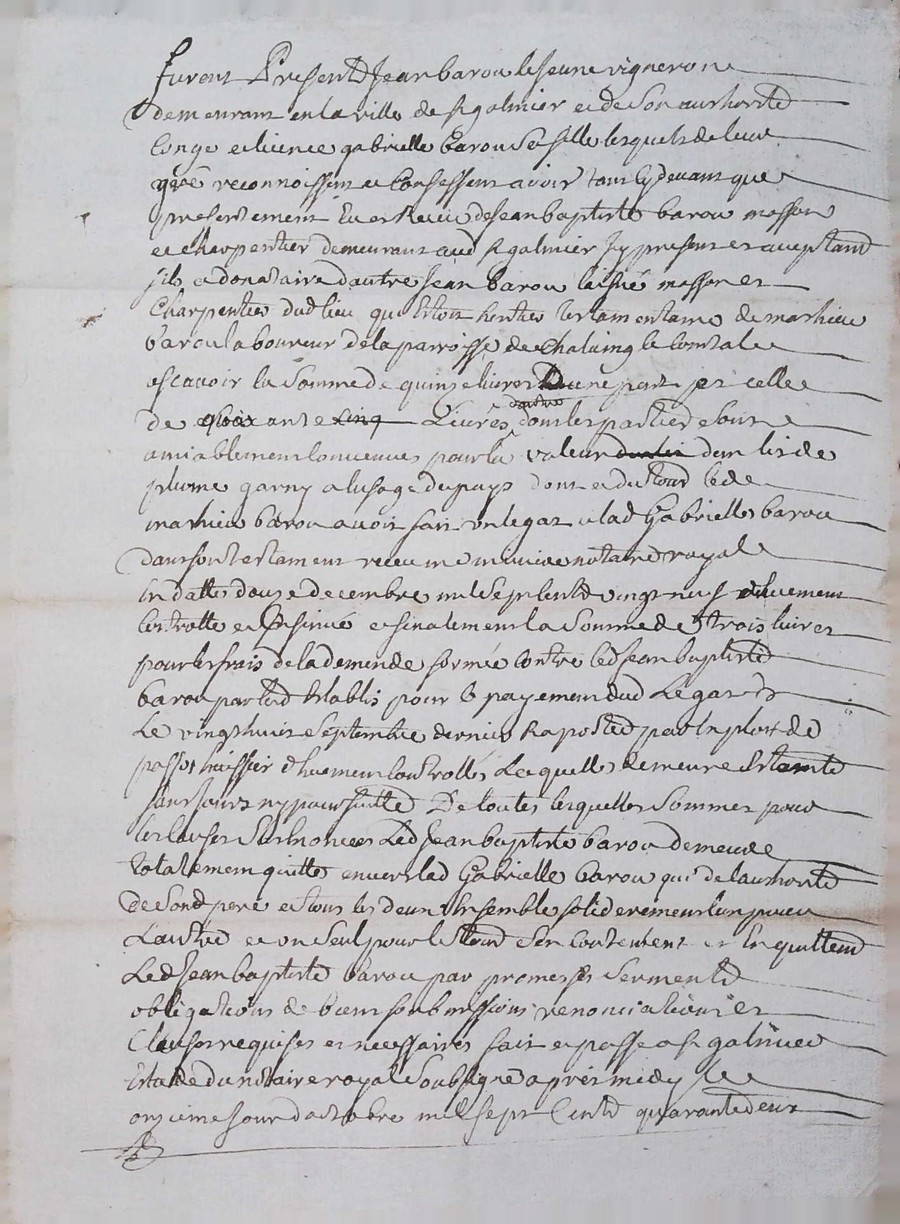 furent Present Jean barou le Jeune vigneron
demeurant en la ville de st galmier et de son authorité
Conge et licence gabrielle barou sa fille lesquels de leur
gré reconnoissent et Confessent avoir tant cy devant que
presentement Eu et Receu de Jean baptiste barou masson
et charpentier demeurant aud st galmier Jcy present et acceptant
fils et donataire d'autre Jean barou laisné masson et
Charpentier dud lieu qui Estoit heritier testamentaire de mathieu
barou laboureur de la parroisse de chalaing le Comtal
ascavoir la Somme de quinze livres d'une part et celle
de cinq Livres d'autre dont les parties se sont
amiablement Convenues pour la valeur d'un lit de
plume garny a lusage du pays dont et du tout led
mathieu barou avoit fait un legat a lad Gabrielle barou
dans son testament receu me notaire royal
En datte douze decembre mil sept cent vingt neuf deuement
Controllé et Insinué et finalement la somme de trois livres
pour les frais de la demende formée Contre led Jean baptiste
barou par Establis pour le payement dud Legat
Le vingt huit Septembre dernier Raporté par Exploit de
huissier deuement Controllé Laquelle demeure Esteinte
sans suitte ny poursuitte De toutes lesquelles Sommes pour
les causes susenoncées Led Jean baptiste barou demeure
totalement quitte envers lad Gabrielle barou qui de lauthorité
de Sond pere et tous les deux Ensemble solidairement lun pour
Lautre et un Seul pour le tout s'en Contentent et En quittent
Led Jean baptiste barou par promesses Serment
obligations de biens soubmissions renonciations et
Clauses requises et necessaires fait et passé a st galmier
Estude du notaire royal Soubsigné aprés midy le
onzieme Jour doctobre mil sept Cent quarante deux